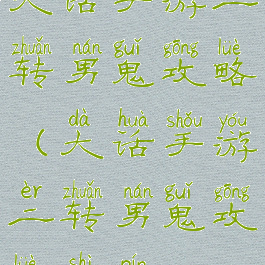 大话手游二
zhuǎn nán guǐ gōng lüè
转男鬼攻略
dà huà shǒu yóu
(大话手游
èr zhuǎn nán guǐ gōng
二转男鬼攻
lüè shì pín